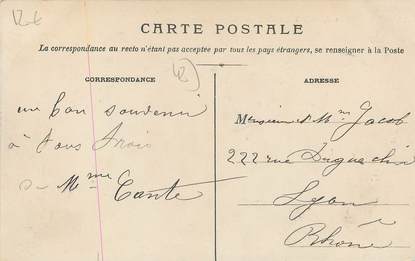 CARTE POSTALE
La correspondance au recto n'étant pas acceptée par tous les pays étrangers, se renseigner à la Poste
CORRESPONDANCE
un bon souvenir
à tous trois
Mme Tante
ADRESSE
Monsieur & Mme Jacob
222 rue Duguesclin
Lyon
Rhône